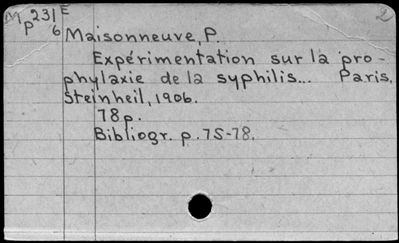 M 231 E
p 6
2
Maisonneuve, P.
Expérimentation sur la pro-
phylaxie de la syphilis... Paris,
Steinheil, 1906.
78p.
Bibliogr. p. 75-78.